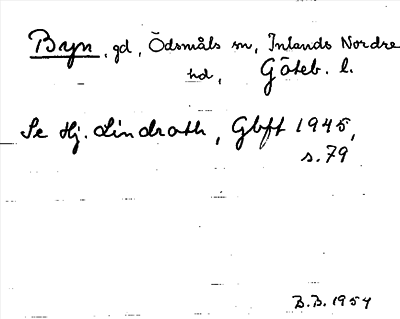 Byn, gd, Ödsmåls sn, Inlands Nordre
hd, Göteb. l.
Se Hj. Lindroth, Gbft 1945,
s. 79
B.B. 1954